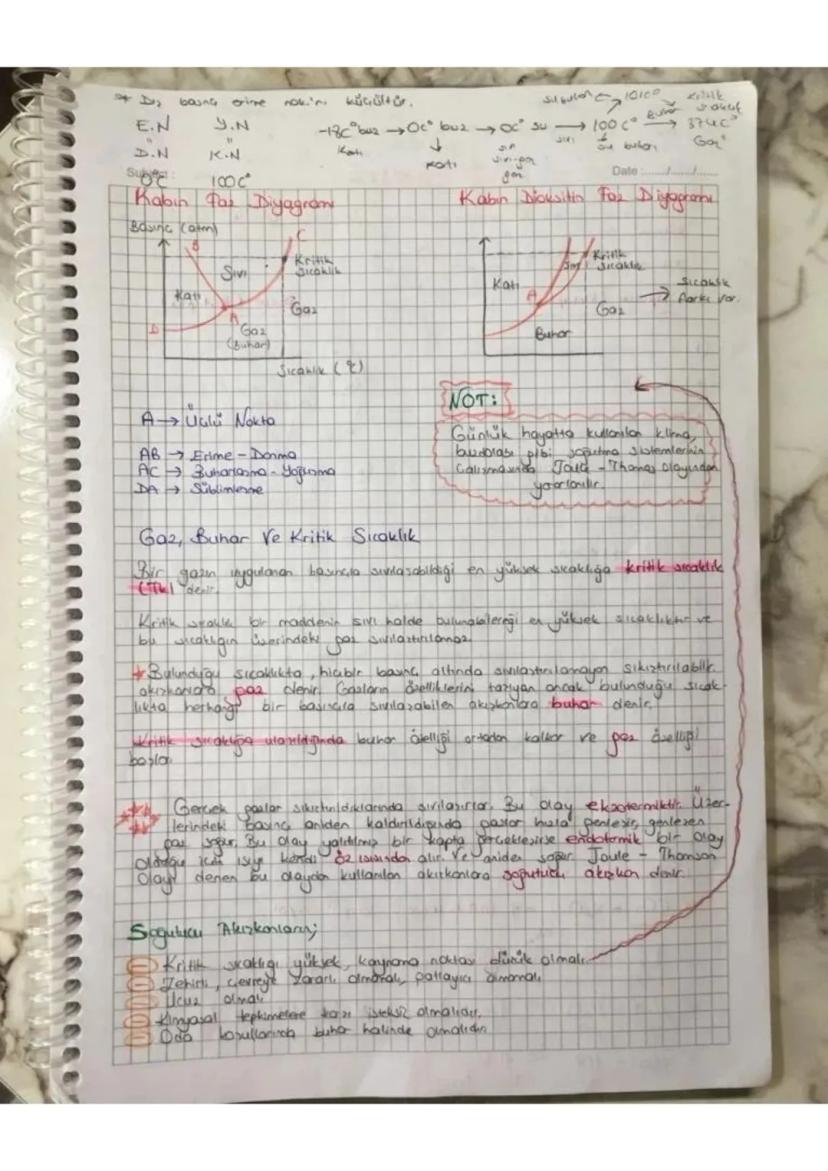 * Dış basınç erime nok.'nı küçültür.
E.N Y.N
" "
D.N K.N
0C° 100C°
-18C° buz → 0C° buz → 0C° su → 100C° → 374C°
Katı Katı sıvı su buharı Gaz
101C°
Buhar
Kritik sıcaklık
Subject: Date: ....../....../......
Kabın Faz Diyagramı
Basınç (atm)
B C
Sıvı
Kritik
Sıcaklık
Katı
A
Gaz
D
Gaz
(Buhar)
Sıcaklık (°C)
Kabın Dioksitin Faz Diyagramı
Katı
Sıvı
Kritik
Sıcaklık
A
Gaz
Buhar
→ Sıcaklık
farkı var.
A → Üçlü Nokta
AB → Erime - Donma
AC → Buharlaşma - Yoğuşma
DA → Süblimleşme
NOT:
Günlük hayatta kullanılan klima,
buzdolabı gibi soğutma sistemlerinin
çalışmasında Joule - Thomas olayından
yararlanılır.
Gaz, Buhar Ve Kritik Sıcaklık
Bir gazın uygulanan basınçla sıvılaşabildiği en yüksek sıcaklığa kritik sıcaklık
(Tk) denir.
Kritik sıcaklık bir maddenin sıvı halde bulunabileceği en yüksek sıcaklıktır ve
bu sıcaklığın üzerindeki gaz sıvılaştırılamaz.
* Bulunduğu sıcaklıkta, hiçbir basınç altında sıvılaştırılamayan sıkıştırılabilir
akışkanlara gaz denir. Gazların özelliklerini taşıyan ancak bulunduğu sıcak-
lıkta herhangi bir basınçla sıvılaşabilen akışkanlara buhar denir.
Kritik sıcaklığa ulaşıldığında buhar özelliği ortadan kalkar ve gaz özelliği
başlar.
Gerçek gazlar sıkıştırıldıklarında sıvılaşırlar. Bu olay ekzotermiktir. Üzer-
lerindeki basınç aniden kaldırıldığında gazlar hızla genleşir, genleşen
gaz soğur. Bu olay yalıtılmış bir kapta gerçekleşirse endotermik bir olay
olduğu için ısıyı kendi öz ısısında alır. Ve aniden soğur. Joule - Thomson
Olayı denen bu olaydan kullanılan akışkanlara soğutucu akışkan denir.
Soğutucu Akışkanların;
Kritik sıcaklığı yüksek, kaynama noktası düşük olmalı.
Zehirli, çevreye zararlı olmamalı, patlayıcı olmamalı
Ucuz olmalı
Kimyasal tepkimelere karşı isteksiz olmalıdır.
Oda koşullarında buhar halinde olmalıdır.